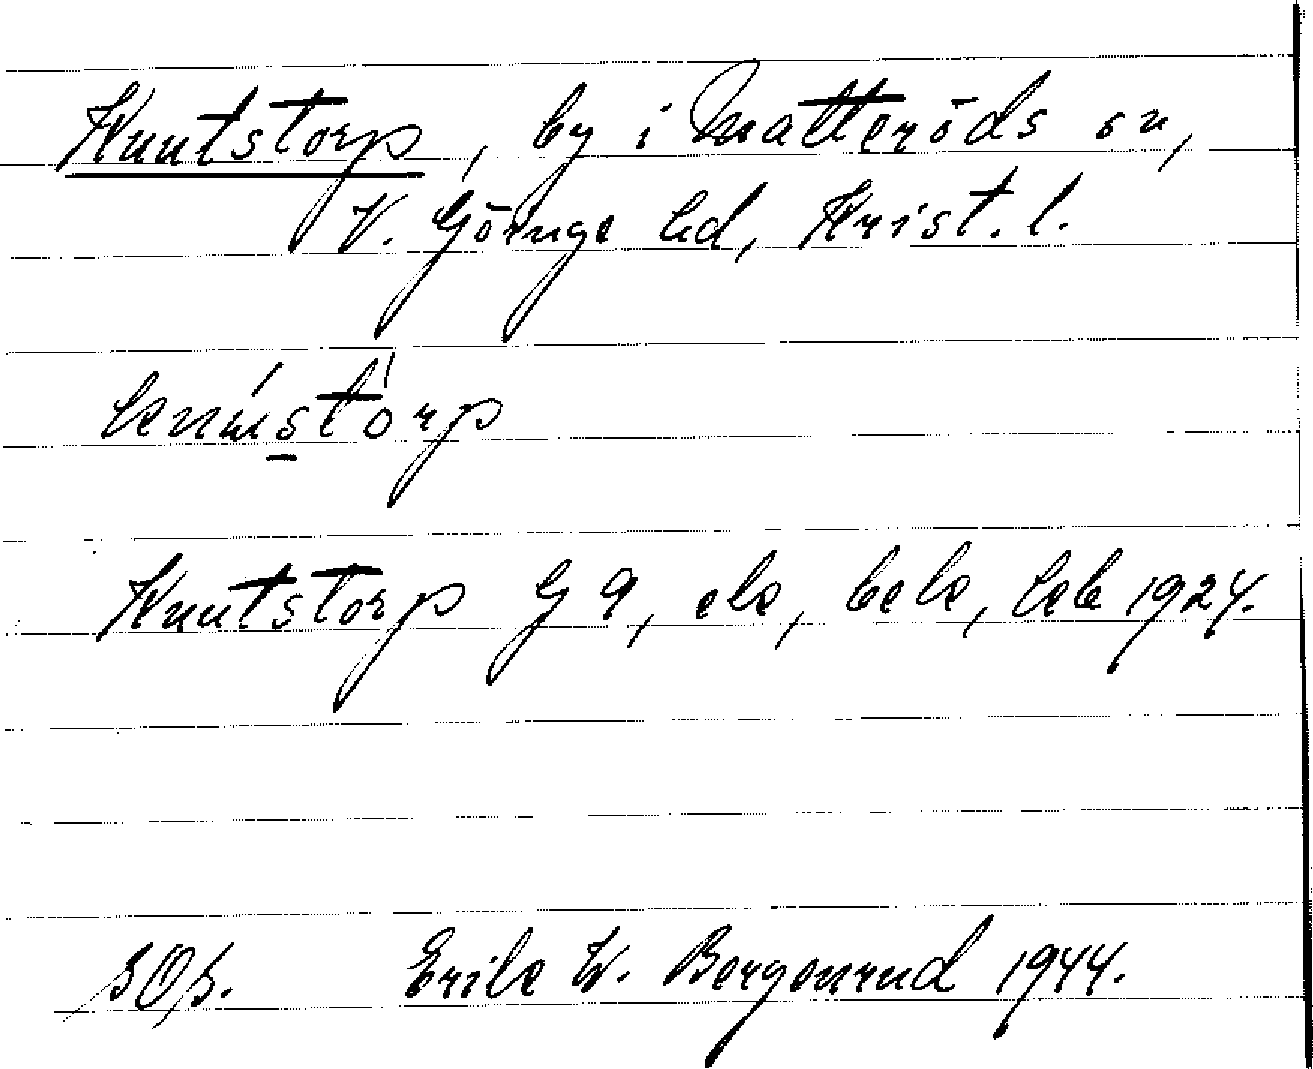 Knutstorp, by i Matteröds sn,
V. Göinge hd, Krist. l.
Knutstorp G 9, ek, bebk, hcb 1924.
sOp. Erik W. Bergenrud 1944.